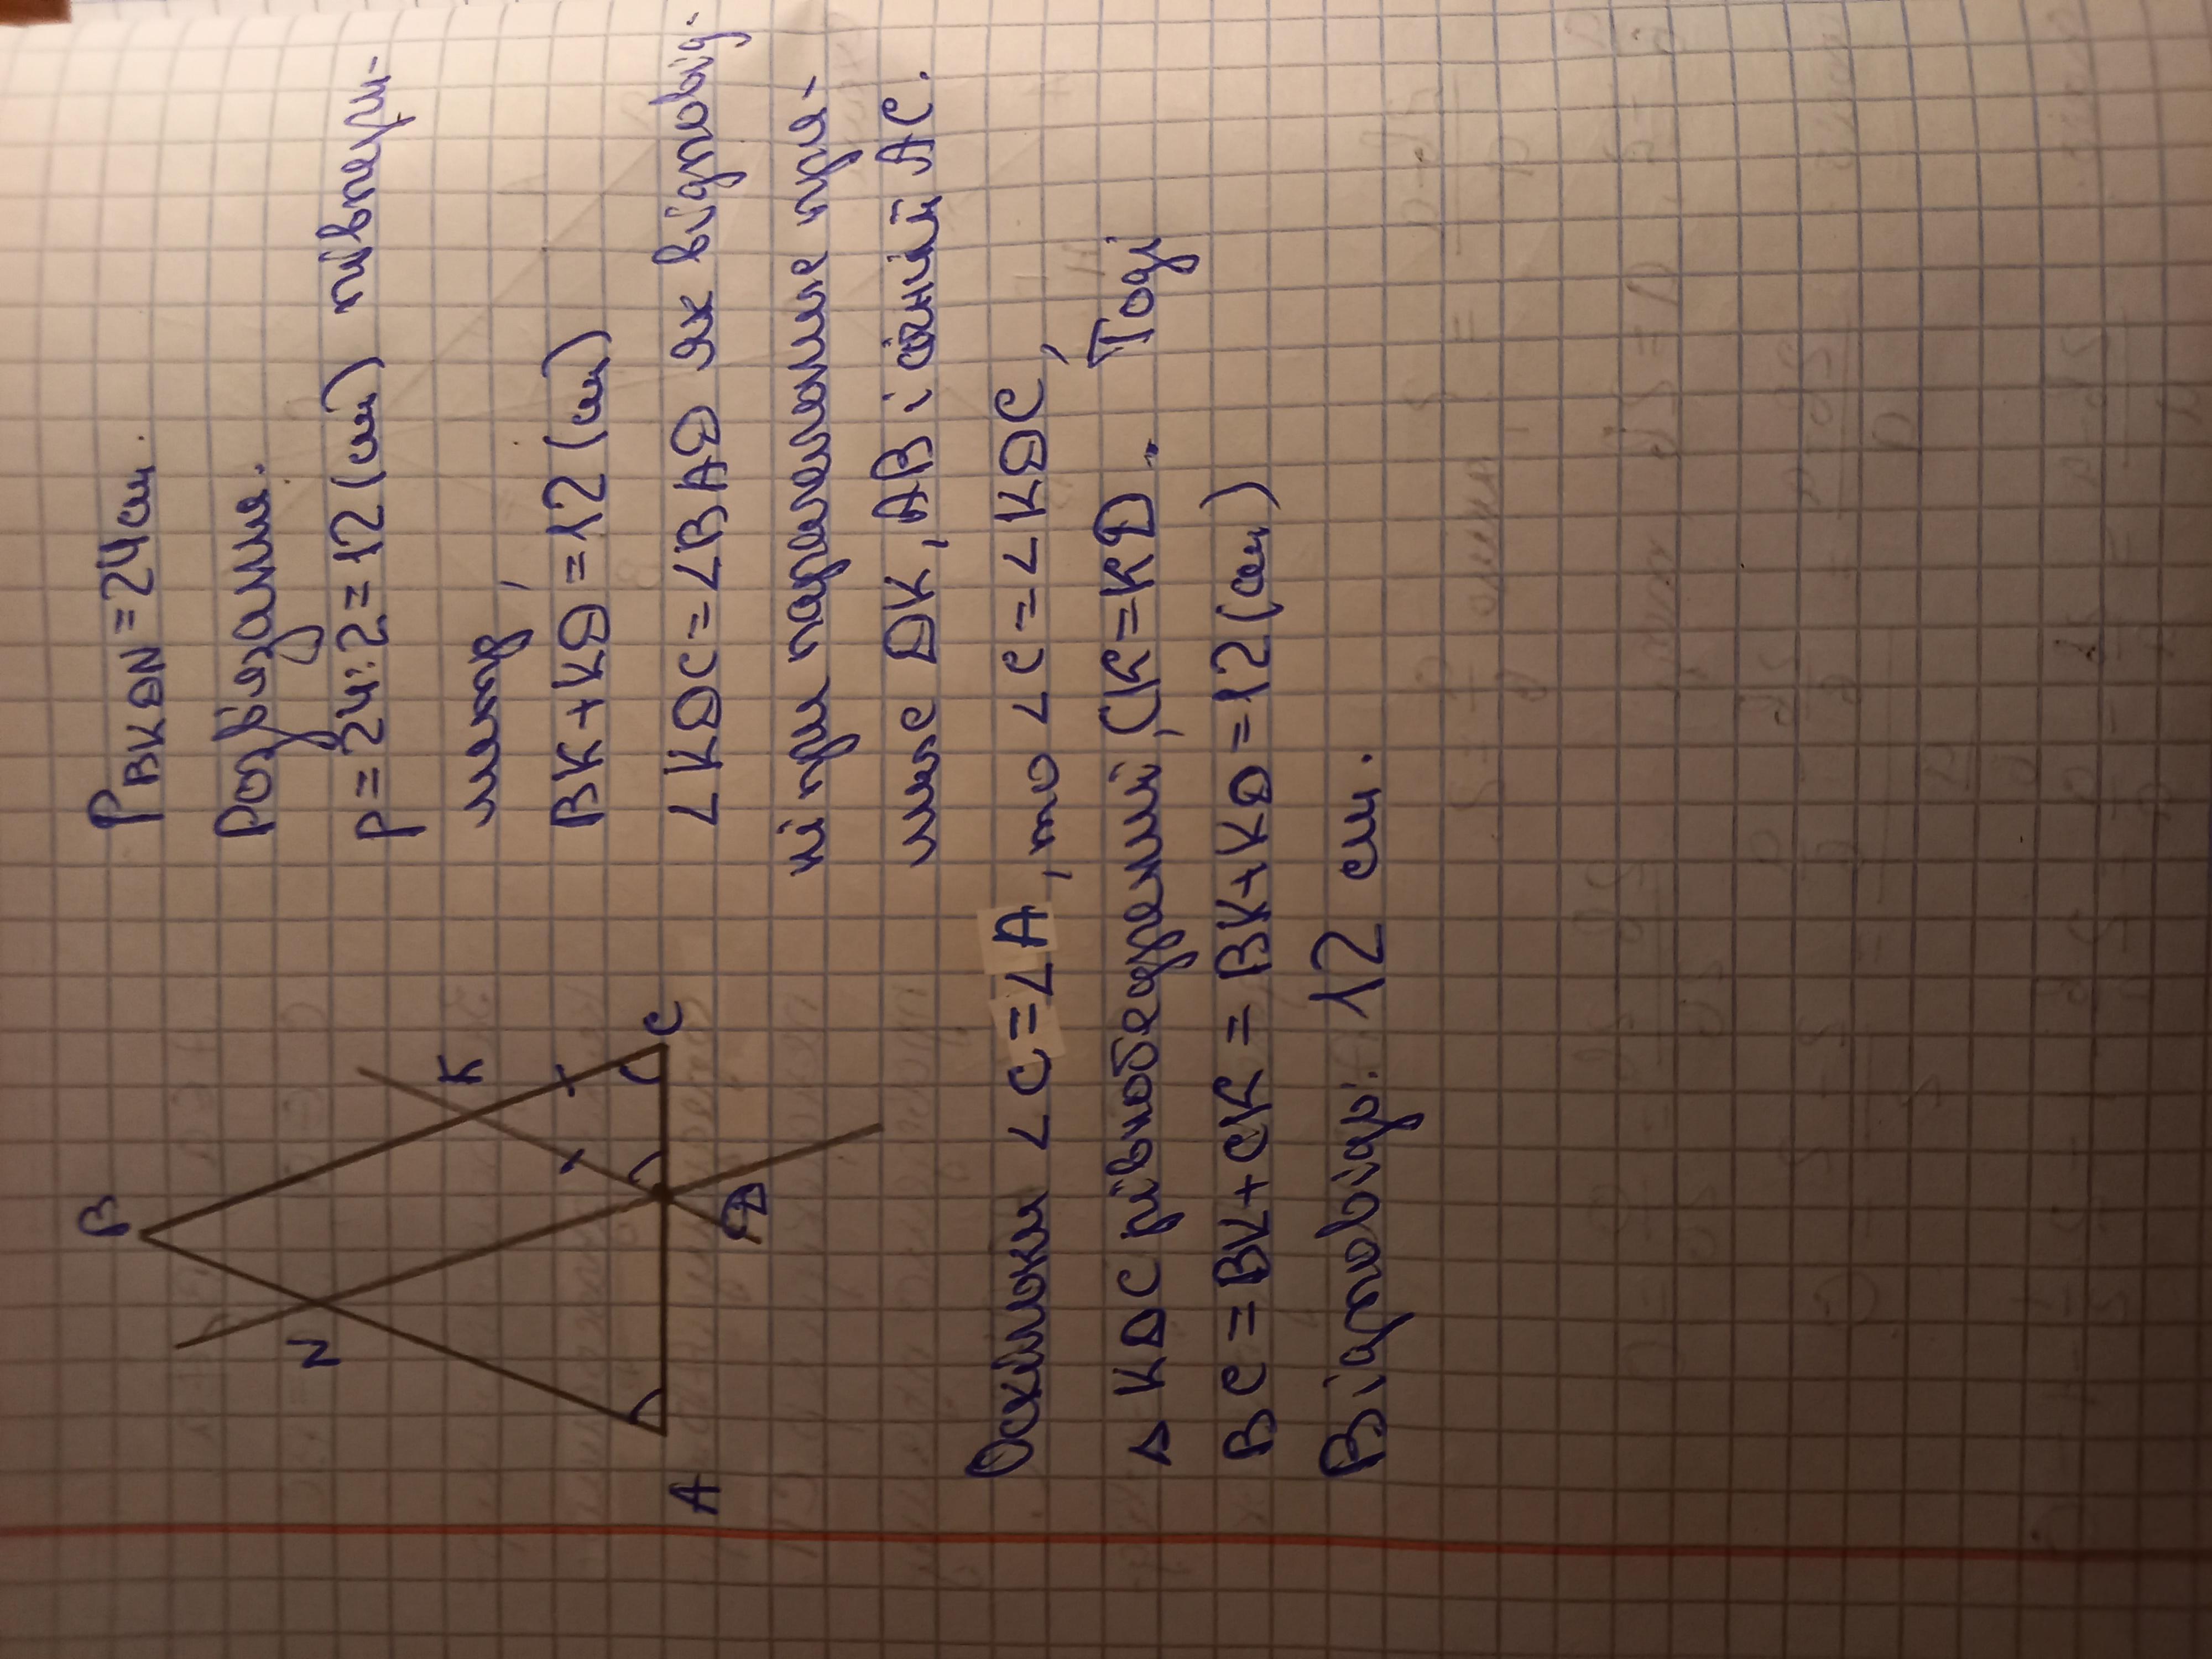 P BKDN = 24 см.
Розв'язання.
p = 24 : 2 = 12 (см) півпери-
метр,
BK + KD = 12 (см)
∠KDC = ∠BAD як відповід-
ні при паралельних пря-
мих DK, AB і січній AC.
Оскільки ∠C = ∠A, то ∠C = ∠KDC,
△ KDC рівнобедрений, CK = KD. Тоді
BC = BK + CK = BK + KD = 12 (см)
Відповідь: 12 см.
B
N
K
A
D
C